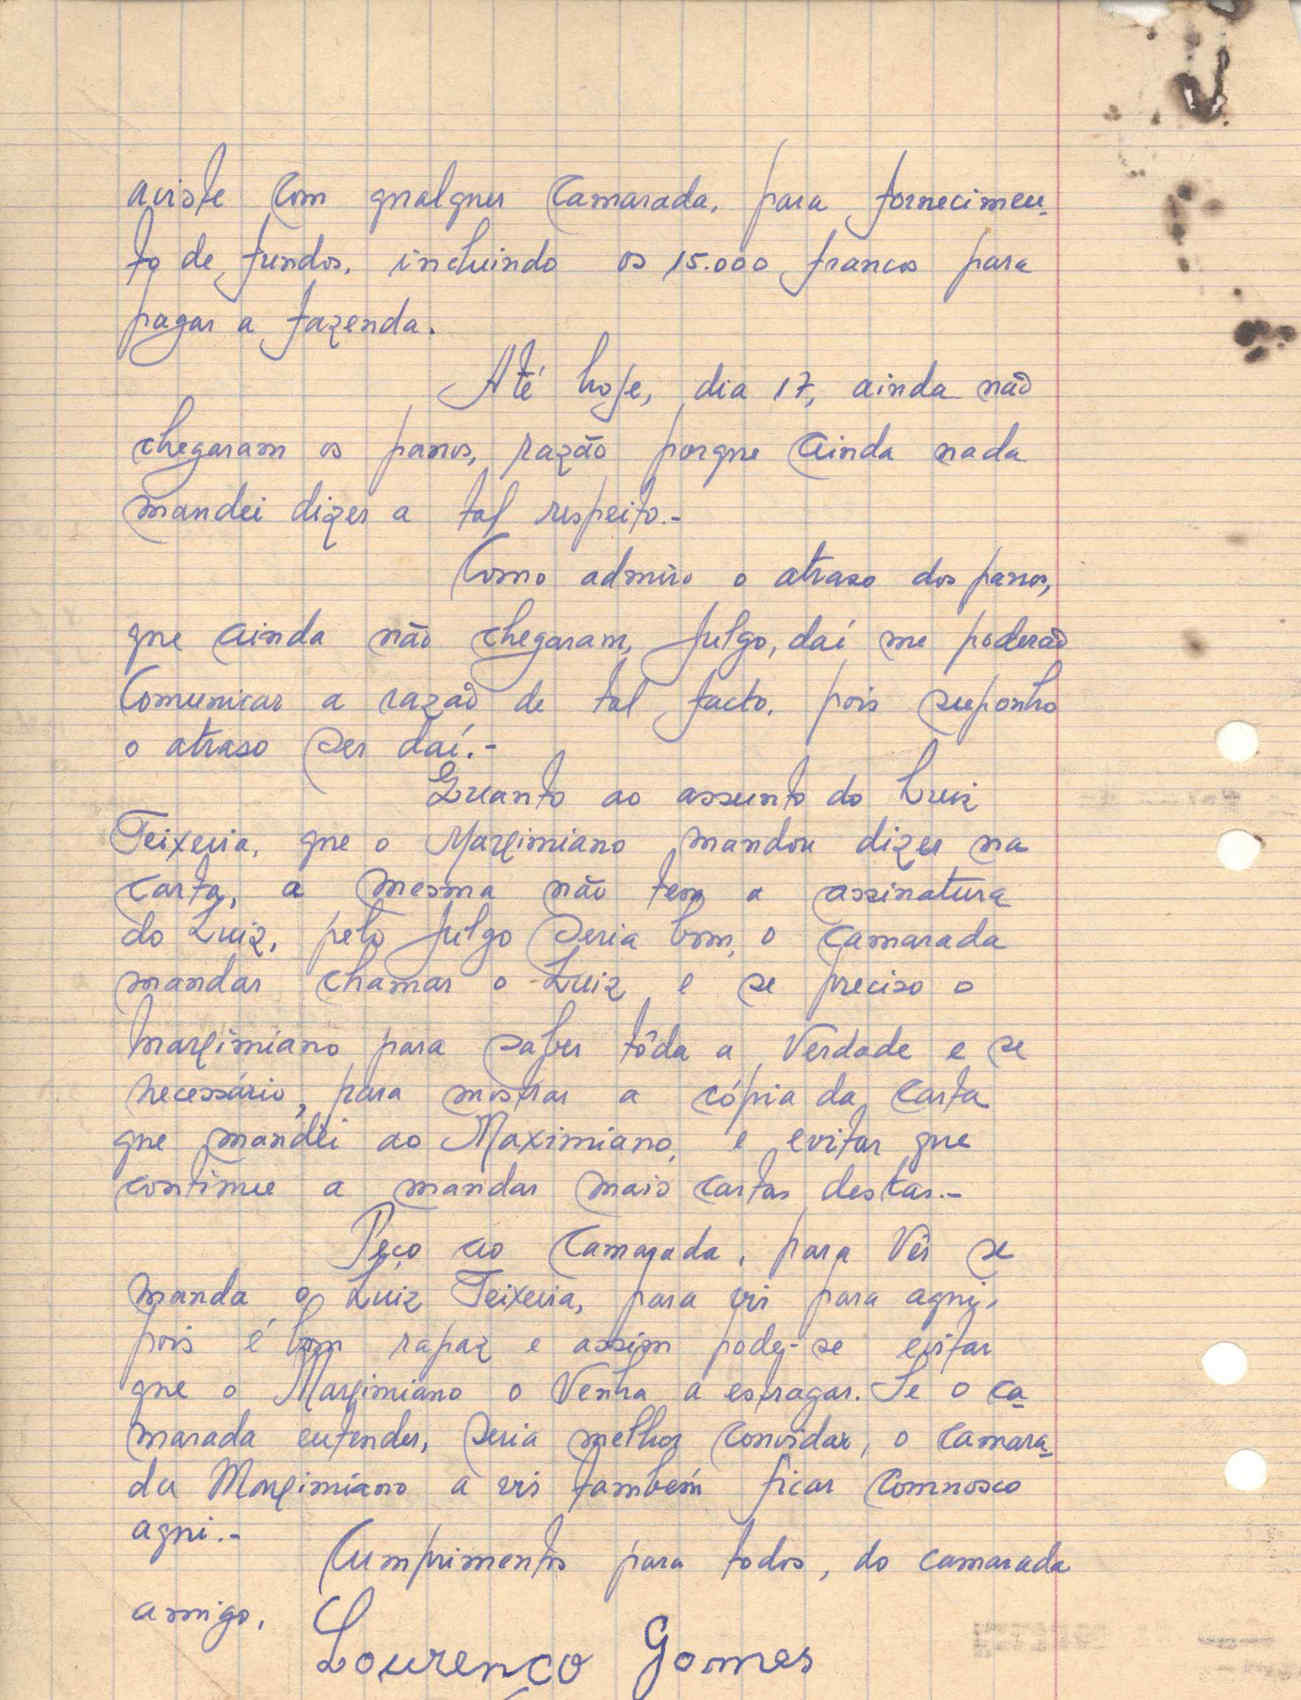 aviste com qualquer camarada, para fornecimen-
to de fundos, incluindo os 15.000 francos para
pagar a fazenda.
Até hoje, dia 17, ainda não
chegaram os panos, razão porque ainda nada
mandei dizer a tal respeito.-
Como admiro o atraso dos panos,
que ainda não chegaram, julgo, daí me poderão
comunicar a razão de tal facto, pois suponho
o atraso ser daí.-
Quanto ao assunto do Luiz
Teixeira, que o Maximiano mandou dizer na
carta, a mesma não tem a assinatura
do Luiz, pelo julgo seria bom, o camarada
mandar chamar o Luiz e se preciso o
Maximiano para saber tôda a verdade e se
necessário, para mostrar a cópia da carta
que mandei ao Maximiano, e evitar que
continue a mandar mais cartas destas.-
Peço ao camarada, para vêr se
manda o Luiz Teixeira, para vir para aqui,
pois é bom rapaz e assim pode-se evitar
que o Maximiano o venha a estragar. Se o ca-
marada entender, seria melhor convidar, o camara-
da Maximiano a vir também ficar connosco
aqui.-
Cumprimentos para todos, do camarada
amigo,
Lourenço Gomes